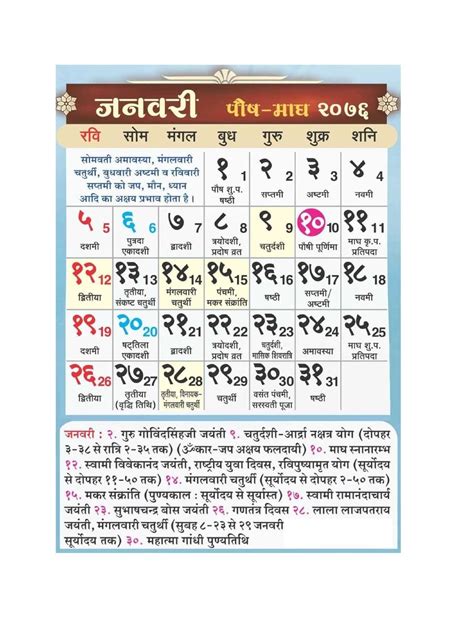 जनवरी पौष-माघ २०७६
रवि सोम मंगल बुध गुरु शुक्र शनि
सोमवती अमावस्या, मंगलवारी
चतुर्थी, बुधवारी अष्टमी व रविवारी
सप्तमी को जप, मौन, ध्यान
आदि का अक्षय प्रभाव होता है ।
१ 1 २ 2 ३ 3 ४ 4
पौष शु.प. षष्ठी सप्तमी अष्टमी नवमी
५ 5 ६ 6 ७ 7 ८ 8 ९ 9 १० 10 ११ 11
दशमी पुत्रदा एकादशी द्वादशी त्रयोदशी, प्रदोष व्रत चतुर्दशी पौषी पूर्णिमा माघ कृ.प. प्रतिपदा
१२ 12 १३ 13 १४ 14 १५ 15 १६ 16 १७ 17 १८ 18
द्वितीया तृतीया, संकष्ट चतुर्थी मंगलवारी चतुर्थी पंचमी, मकर संक्रांति षष्ठी सप्तमी/ अष्टमी नवमी
१९ 19 २० 20 २१ 21 २२ 22 २३ 23 २४ 24 २५ 25
दशमी षट्तिला एकादशी द्वादशी त्रयोदशी, प्रदोष व्रत चतुर्दशी, मासिक शिवरात्रि अमावस्या माघ शु.प. प्रतिपदा
२६ 26 २७ 27 २८ 28 २९ 29 ३० 30 ३१ 31
द्वितीया तृतीया (वृद्धि तिथि) तृतीया, विनायक- मंगलवारी चतुर्थी चतुर्थी वसंत पंचमी, सरस्वती पूजा षष्ठी
जनवरी : २. गुरु गोविंदसिंहजी जयंती ९. चतुर्दशी-आर्द्रा नक्षत्र योग (दोपहर
३-३८ से रात्रि २-३५ तक) (ॐकार-जप अक्षय फलदायी) १०. माघ स्नानारम्भ
१२. स्वामी विवेकानंद जयंती, राष्ट्रीय युवा दिवस, रविपुष्यामृत योग (सूर्योदय
से दोपहर ११-५० तक) १४. मंगलवारी चतुर्थी (सूर्योदय से दोपहर २-५० तक)
१५. मकर संक्रांति (पुण्यकाल : सूर्योदय से सूर्यास्त) १७. स्वामी रामानंदाचार्य
जयंती २३. सुभाषचन्द्र बोस जयंती २६. गणतंत्र दिवस २८. लाला लाजपतराय
जयंती, मंगलवारी चतुर्थी (सुबह ८-२३ से २९ जनवरी
सूर्योदय तक) ३०. महात्मा गांधी पुण्यतिथि